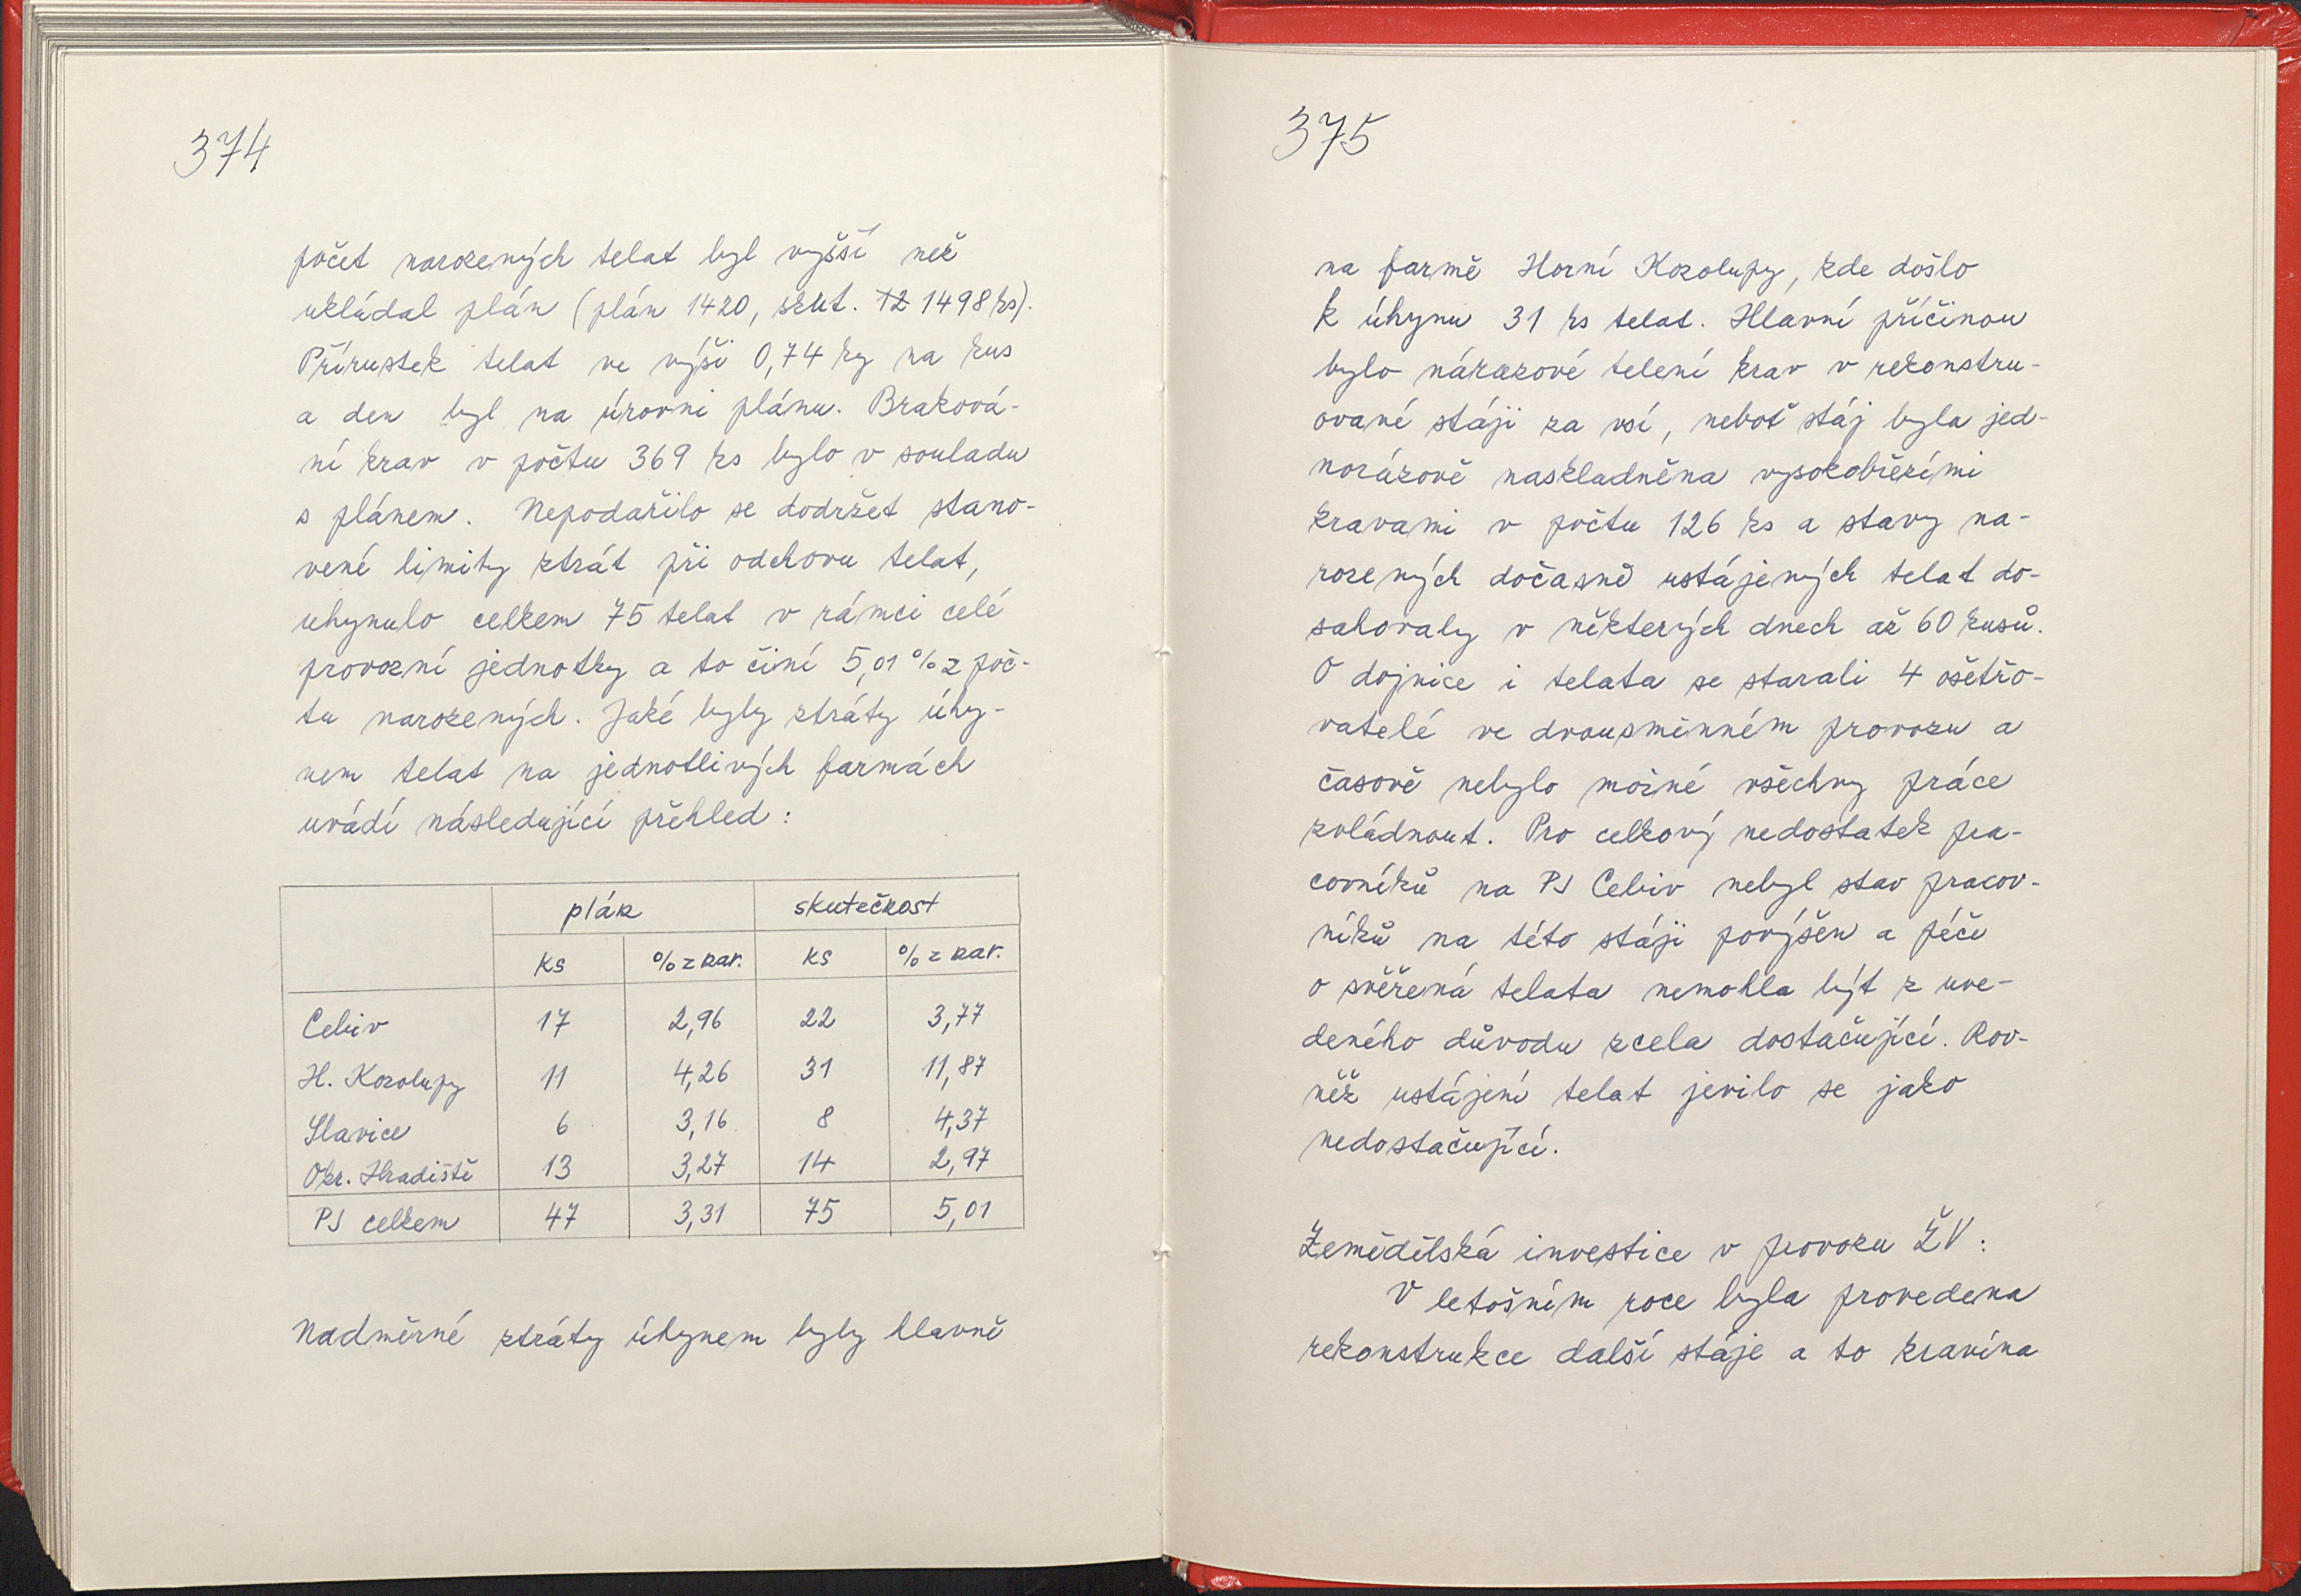 374
počet narozených telat byl vyšší než
ukládal plán (plán 1420, skut. 12 1498 ks).
Přírustek telat ve výši 0,74 kg na kus
a den byl na úrovni plánu. Braková-
ní krav v počtu 369 ks bylo v souladu
s plánem. Nepodařilo se dodržet stano-
vené limity ztrát při odchovu telat,
uhynulo celkem 75 telat v rámci celé
provozní jednotky a to činí 5,01 % z poč-
tu narozených. Jaké byly ztráty úhy-
nem telat na jednotlivých farmách
uvádí následující přehled:
plán skutečnost
ks % z nar. ks % z nar.
Cebiv 17 2,96 22 3,77
H. Kozolupy 11 4,26 31 11,87
Slavice 6 3,16 8 4,37
Okr. Hradiště 13 3,27 14 2,97
PJ celkem 47 3,31 75 5,01
Nadměrné ztráty úhynem byly hlavně
375
na farmě Horní Kozolupy, kde došlo
k úhynu 31 ks telat. Hlavní příčinou
bylo nárazové telení krav v rekonstru-
ované stáji za vsí, neboť stáj byla jed-
norázově naskladněna vysokobřezími
kravami v počtu 126 ks a stavy na-
rozených dočasně ustájených telat do-
sahovaly v některých dnech až 60 kusů.
O dojnice i telata se starali 4 ošetřo-
vatelé ve dvousměnném provozu a
časově nebylo možné všechny práce
zvládnout. Pro celkový nedostatek pra-
covníků na PJ Cebiv nebyl stav pracov-
níků na této stáji povýšen a péče
o svěřená telata nemohla být z uve-
deného důvodu zcela dostačující. Rov-
něž ustájení telat jevilo se jako
nedostačující.
Zemědělská investice v provozu ŽV:
V letošním roce byla provedena
rekonstrukce další stáje a to kravína